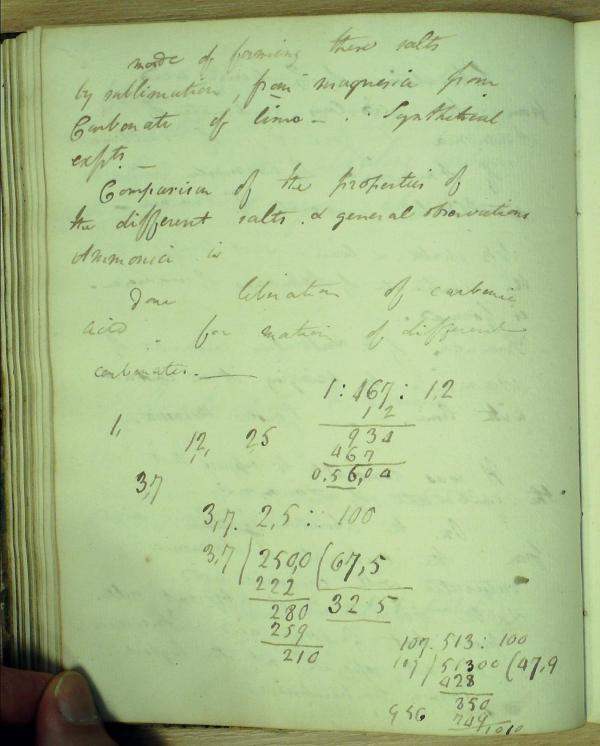 mode of forming these salts
by sublimation, from magnesia from
Carbonate of lime - . Synthetical
expts. -
Comparison of the properties of
the different salts. & general observations
Ammonia is
liberation of carbonic
acid . formation of different
carbonates. -
1 : 467 : 1,2
1 2
1, 12, 25 934
467
3,7 0.5604
3,7. 2,5 : : 100
3,7 / 250,0 ( 67,5
222
280 32 5
259
210
107. 513 : 100
107 / 51300 ( 47,9
428
850
956 749
1010